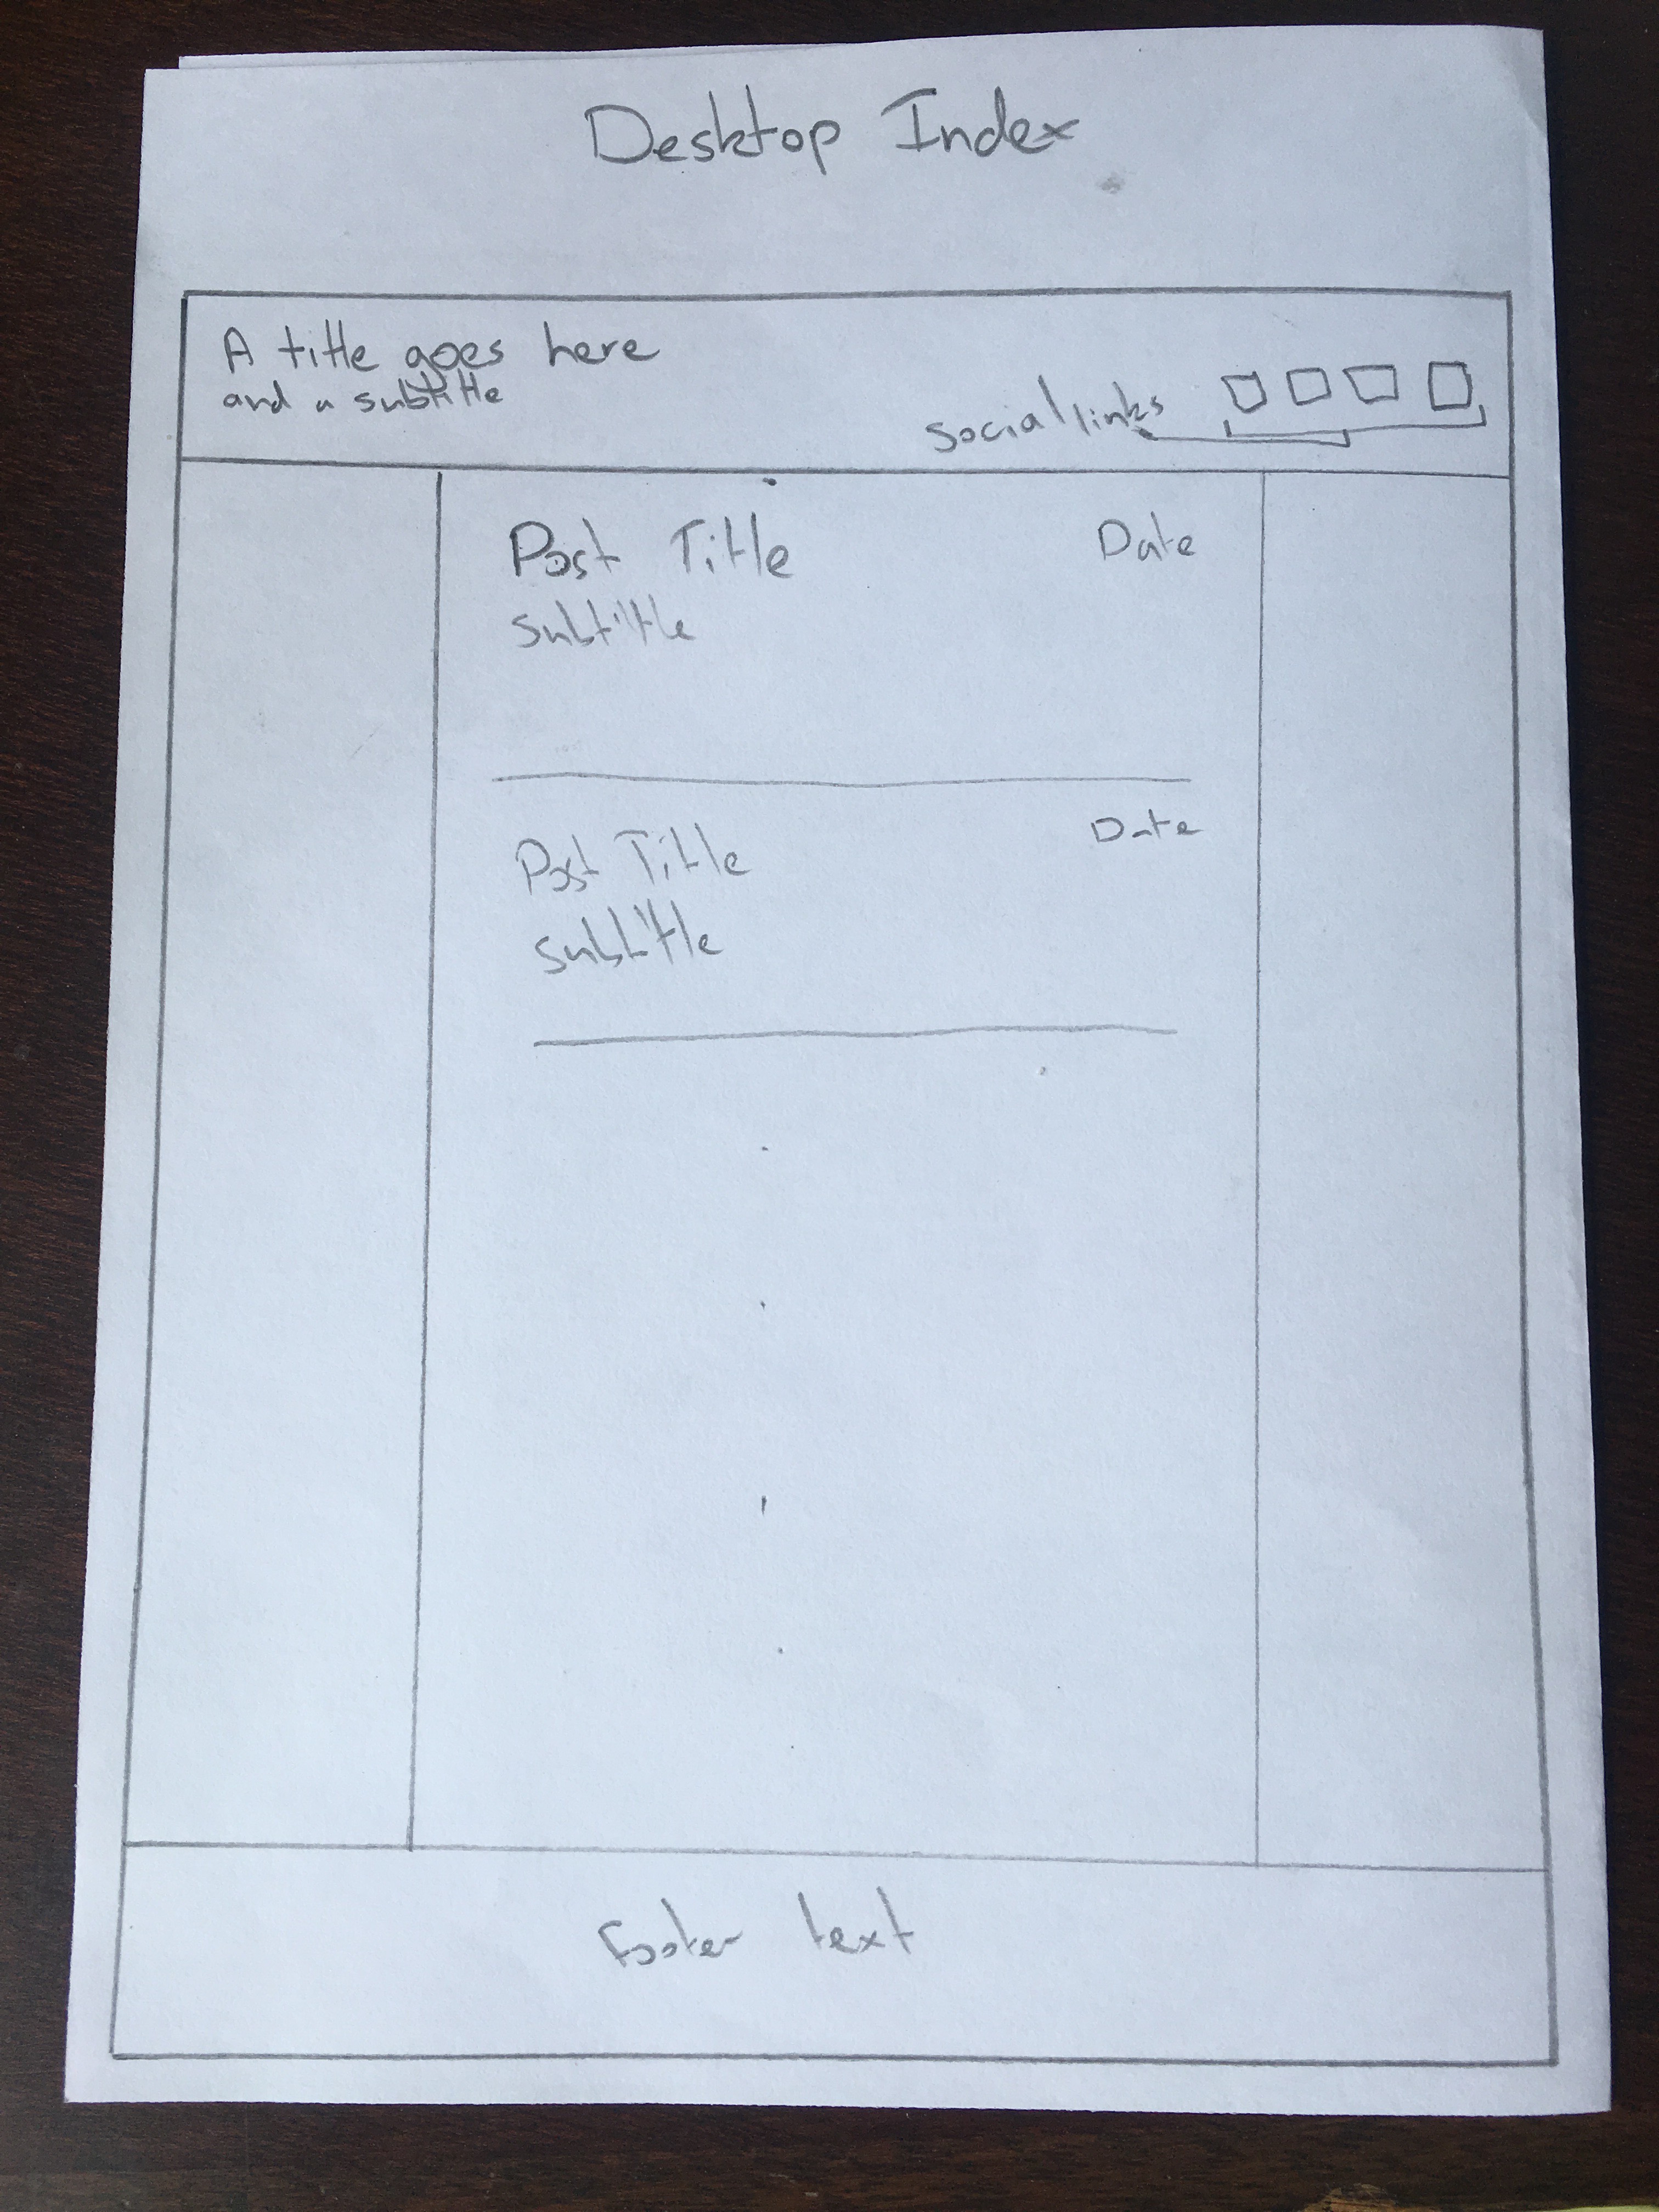 Desktop Index
A title goes here
and a subtitle
social links
Post Title Date
Subtitle
Post Title Date
Subtitle
Footer text